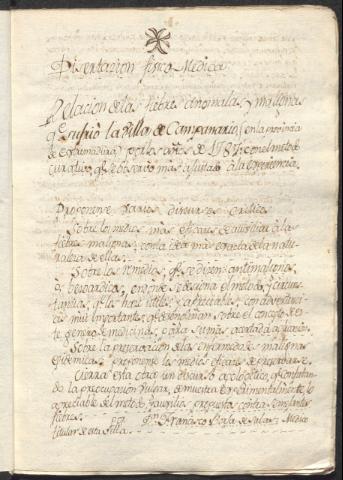 Disertacion fisico Medica
Relacion de las fiebres anomalas, y malignas
qe sufrió la Villa de Campanario, en la provincia
de Extremadura, por los años de 1787: con el metodo
curativo, qe se observó más ajustado à la experiencia.
Proponense varios discursos criticos
Sobre los medios mas eficaces de auxiliar à las
fiebres malignas, con la idea mas exacta de la natu-
raleza de ellas.
Sobre los remedios, qe se dizen antimalignos,
ó bezoardicos, en donde se designa el metodo, y circuns-
tancias, qe los hace utiles, y apreciables; con advertenci-
as mui importantes, qe se sobre el concepto de es-
te genero de medicinas, para su mas acertada aplicacion.
Sobre la preservacion de las enfermedades malignas
epidemicas: proponense los medios eficaces de preservarse.
Cierra esta obra un discurso apologetico, qe contatan-
do la preocupacion vulgar, demuestra experimentalmente, lo
apreciable del metodo, y auxilios propuestos contra semejantes
fiebres. Por Dn Francisco Borja de Salas, Medico
titular de esta Villa.